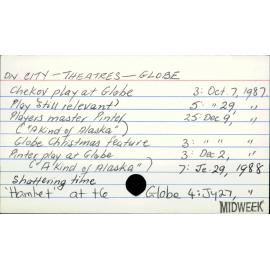 DN CITY - THEATRES - GLOBE
Chekov play at Globe 3: Oct. 7, 1987
Play still relevant) 5: " 29, "
Players master Pinter 25: Dec 9, "
("A Kind of Alaska")
Globe Christmas feature 3: " " "
Pinter play at Globe 3: Dec 2, "
("A Kind of Alaska") 7: Je. 29, 1988
Shattering time
'Hamlet' at t6 Globe 4: Jy 27, "
MIDWEEK